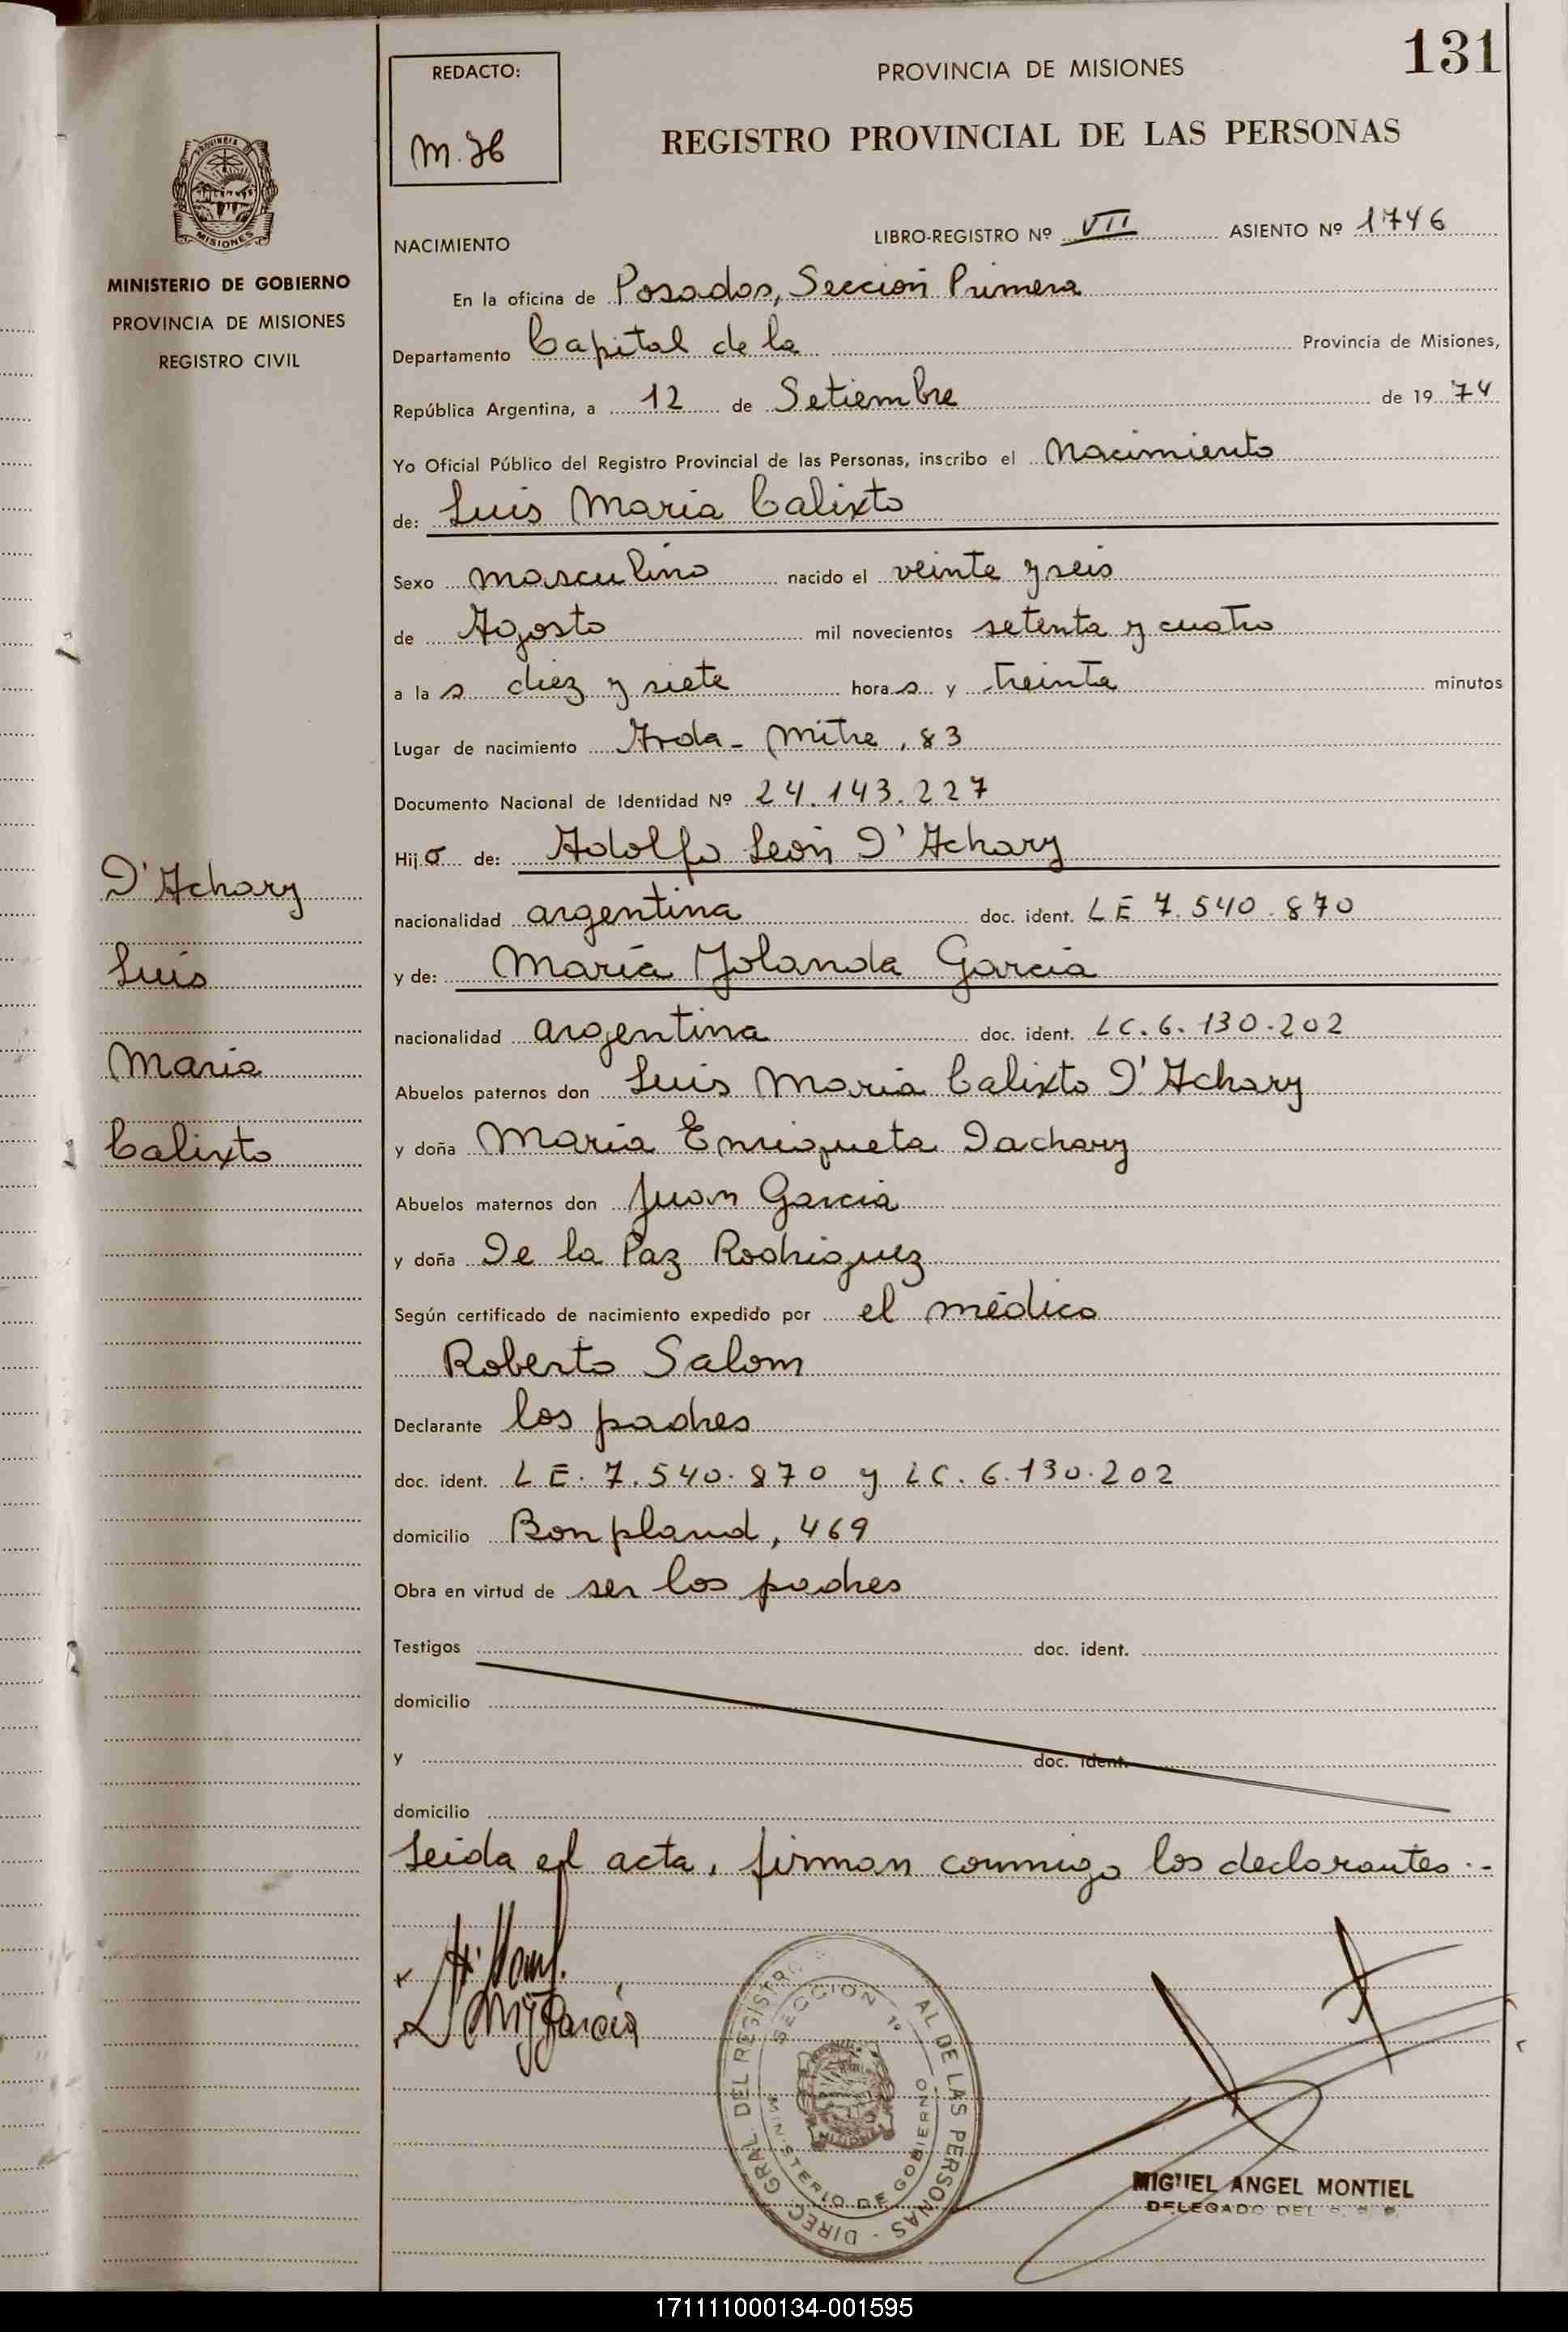 131
REDACTO:
M.H
PROVINCIA DE MISIONES
REGISTRO PROVINCIAL DE LAS PERSONAS
PROVINCIA DE
MISIONES
MINISTERIO DE GOBIERNO
PROVINCIA DE MISIONES
REGISTRO CIVIL
NACIMIENTO
LIBRO-REGISTRO Nº VII ASIENTO Nº 1746
En la oficina de Posadas, Sección Primera
Departamento Capital de la Provincia de Misiones,
República Argentina, a 12 de Setiembre de 1974
Yo Oficial Público del Registro Provincial de las Personas, inscribo el Nacimiento
de: Luis María Calixto
Sexo masculino nacido el veinte y seis
de Agosto mil novecientos setenta y cuatro
a la s diez y siete hora s y treinta minutos
Lugar de nacimiento Avda- Mitre, 83
Documento Nacional de Identidad Nº 24.143.227
Hijo de: Adolfo León D'Achary
nacionalidad argentina doc. ident. LE 7.540.870
y de: María Yolanda García
nacionalidad argentina doc. ident. LC.6.130.202
Abuelos paternos don Luis María Calixto D'Achary
y doña María Enriqueta Dachary
Abuelos maternos don Juan García
y doña De la Paz Rodriguez
Según certificado de nacimiento expedido por el médico
Roberto Salom
Declarante los padres
doc. ident. LE. 7.540.870 y LC. 6.130.202
domicilio Bonpland, 469
Obra en virtud de ser los padres
Testigos doc. ident.
domicilio
y doc. ident.
domicilio
Leida el acta, firman conmigo los declarantes.-
D'Achary
Luis
María
Calixto
García
DIREC. GRAL DEL REGISTRO AL DE LAS PERSONAS
SECCION 1ª
MINISTERIO DE GOBIERNO
MIGUEL ANGEL MONTIEL
DELEGADO DEL
171111000134-001595